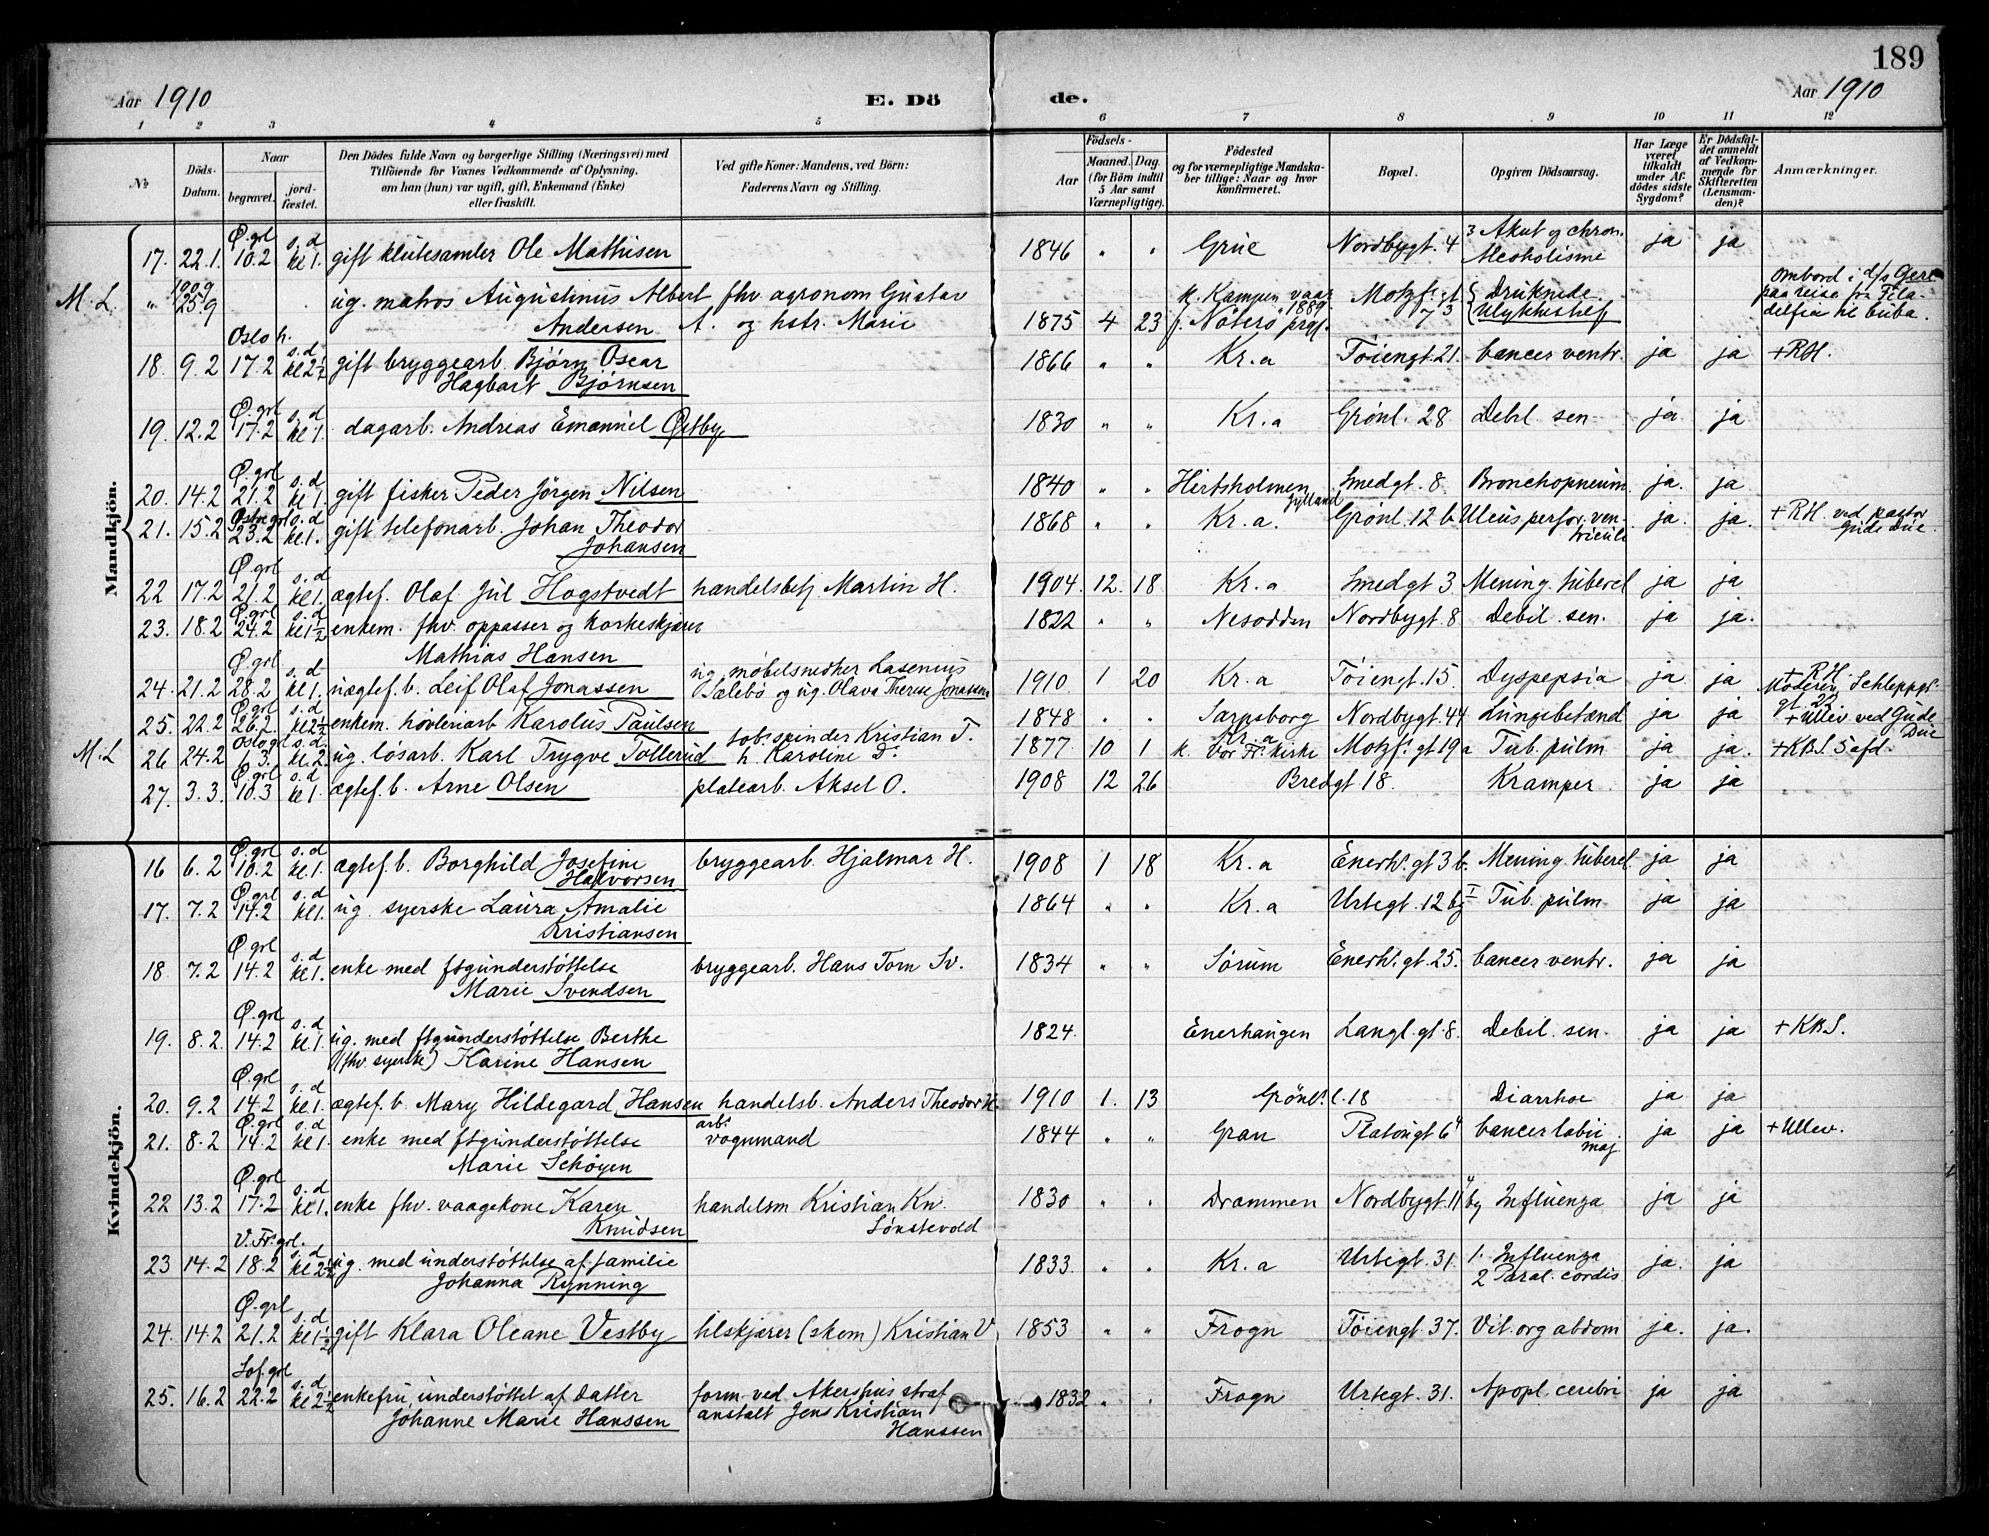 189
Aar 1910 E. Dö de. Aar 1910
1 2 3 4 5 6 7 8 9 10 11 12
No
Döds-Datum.
Naar
begravet.
jord-fæstet.
Den Dödes fulde Navn og borgerlige Stilling (Næringsvei) med
Tilföiende for Voxnes Vedkommende af Oplysning,
om han (hun) var ugift, gift, Enkemand (Enke)
eller fraskilt.
Ved gifte Koner: Mandens, ved Börn:
Faderens Navn og Stilling.
Födsels-
Aar
Maaned. Dag.
(for Börn indtil
5 Aar samt
Værnepligtige).
Födested
og for værnepligtige Mandska-
ber tillige: Naar og hvor
konfirmeret.
Bopæl.
Opgiven Dödsaarsag.
Har Læge
været
tilkaldt
under Af-
dödes sidste
Sygdom?
Er Dödsfal-
det anmeldt
af Vedkom-
mende for
Skifteretten
(Lensman-
den)?
Anmærkninger.
Mandkjön.
17. 22.1. Ø. grl 10.2 s. d kl 1. gift klutesamler Ole Mathisen 1846 " " Grue Nordbygt. 4 Akut og chron. Alcoholisme ja ja
M. L. " 1909 25.9 ug. matros Augustinus Albert Andersen fhv agronom Gustav A. og hstr. Marie 1875 4 23 k. Kampen vaar 1889 f. Nøterø prgj. Motzf. gt 7 Druknede Ulykkestilf ombord i d/s Gere paa reise fra Fila-delfia til Cuba.
18. 9.2 Oslo h. 17.2 s. d kl 2½ gift bryggearb. Bjørn Oscar Hagbart Bjørnsen 1866 " " Kr.a Töiengt. 21. Cancer ventr. ja ja +RH.
19. 12.2 Ø. grl 17.2 s. d kl 1. dagarb. Andreas Emanuel Østby 1830 " " Kr.a Grönl. 28 Debil. sen ja ja
20. 14.2 Ø. grl 21.2 s. d kl 1. gift fisker Peder Jörgen Nilsen 1840 " " Hirtsholmen Jylland Smedgt. 8. Bronchopneum. ja. ja
21. 15.2 Østre grl 23.2 s. d kl 1. gift telefonarb. Johan Theodor Johansen 1868 " " Kr.a. Grönl. 12 b. Ulcus perfor. ven-triculi ja. ja. +RH. ved pastor Gude Due
22 17.2 Ø. grl 21.2 s. d kl 1. ægtef. Olaf Jul Hogstvedt handelsbetj Martin H. 1904. 12. 18 Kr.a Smedgt 3 Mening. tubercl ja ja
23. 18.2 Ø. grl 24.2 s. d kl 1½ enkem. fhv. oppasser og korkeskjærer Mathias Hansen 1822 " " Nesodden Nordbygt. 8 Debil. sen. ja ja.
24. 21.2 Ø. grl 28.2 s. d kl 1. uægtef. b. Leif Olaf Jonassen ug. möbelsnedker Lasenius Sælebö og ug. Olava Therese Jonassen 1910 1 20 Kr.a Töiengt. 15. Dyspepsia ja ja + RH. Moderen Schleppgr. gt. 22
25. 22.2 Ø. grl 26.2. s. d kl 2½ enkem. høvleriarb Karolus Paulsen 1848 " " Sarpsborg Nordbygt. 44 Lungebetænd ja ja + Ullev ved Gude Due
M. L 26 24.2 Oslo grl 6.3. s. d kl. 2. ug. lösarb. Karl Trygve Tollerud tob. spinder Kristian T. h. Karoline D. 1877. 10 1 Kr.a k. Vor Fr. kirke Motzf. gt 19 a Tub. pulm ja ja. +KBS. 5 afd.
27. 3.3. Ø. grl 10.3 s. d kl 1. ægtef. b. Arne Olsen platearb. Aksel O. 1908 12 26 Bredgt 18. Kramper ja ja
Kvindekjön.
16 6.2 Ø. grl 10.2 s. d kl 1. ægtef. b. Borghild Josefine Halvorsen bryggearb. Hjalmar H. 1908 1 18 Kr.a Enerh. gt 3 b. Mening. tubercl ja ja
17. 7.2 Ø. grl 14.2 s. d kl 1. ug. syerske Laura Amalie Kristiansen 1864 " " Kr.a Urtegt. 12 bg I Tub. pulm ja ja
18. 7.2 Ø. grl 14.2 s. d kl 1. enke med ftgunderstöttelse Marie Svendsen bryggearb. Hans Torn Sv. 1834 " " Sörum Enerh. gt. 25. Cancer ventr. ja ja
19. 8.2. Ø. grl 14.2 s. d kl 1. ug. med ftgunderstöttelse Berthe (fhv syerske) Karine Hansen 1824. Enerhaugen Langl. gt. 8. Debil. sen. ja ja +KBS.
20. 9.2 Ø. grl 14.2 s. d kl 1. ægtef. b. Mary Hildegard Hansen handelsb. Anders Theodor H. 1910 1. 13 Grönl. l. 18 Diarrhoe ja ja
21. 8.2 Ø. grl 14.2 s. d kl 1. enke med ftgunderstöttelse Marie Schöyen arb. vognmand 1844 " " Gran Platougt 6 Cancer labii maj. ja ja +Ullev.
22 13.2 Ø. grl 17.2 s. d kl 1. enke fhv. vaagekone Karen Knudsen handelsm Kristian Kn. Sönstevold 1830 " " Drammen Nordbygt. 11 bg Influenza ja ja
23 14.2 V. Fr. grl. 18.2 s. d kl 2½ ug. med understöttelse af familie Johanna Rynning 1833 " " Kr.a Urtegt. 31. 1. Influenza 2 Paral. cordis ja. ja
24. 14.2 Ø. grl 21.2 s. d kl 1½ gift Klara Oleane Vestby tilskjærer (skom) Kristian V 1853 " " Frogn Töiengt. 37. Vit. org abdom ja. ja.
25. 16.2 Sof. grl 22.2 s. d kl 2½ enkefru, understöttet af datter Johanne Marie Hanssen form. ved Akershus straf anstalt Jens Kristian Hanssen 1832 " " Frogn Urtegt. 31. Apopl. cerebri ja ja